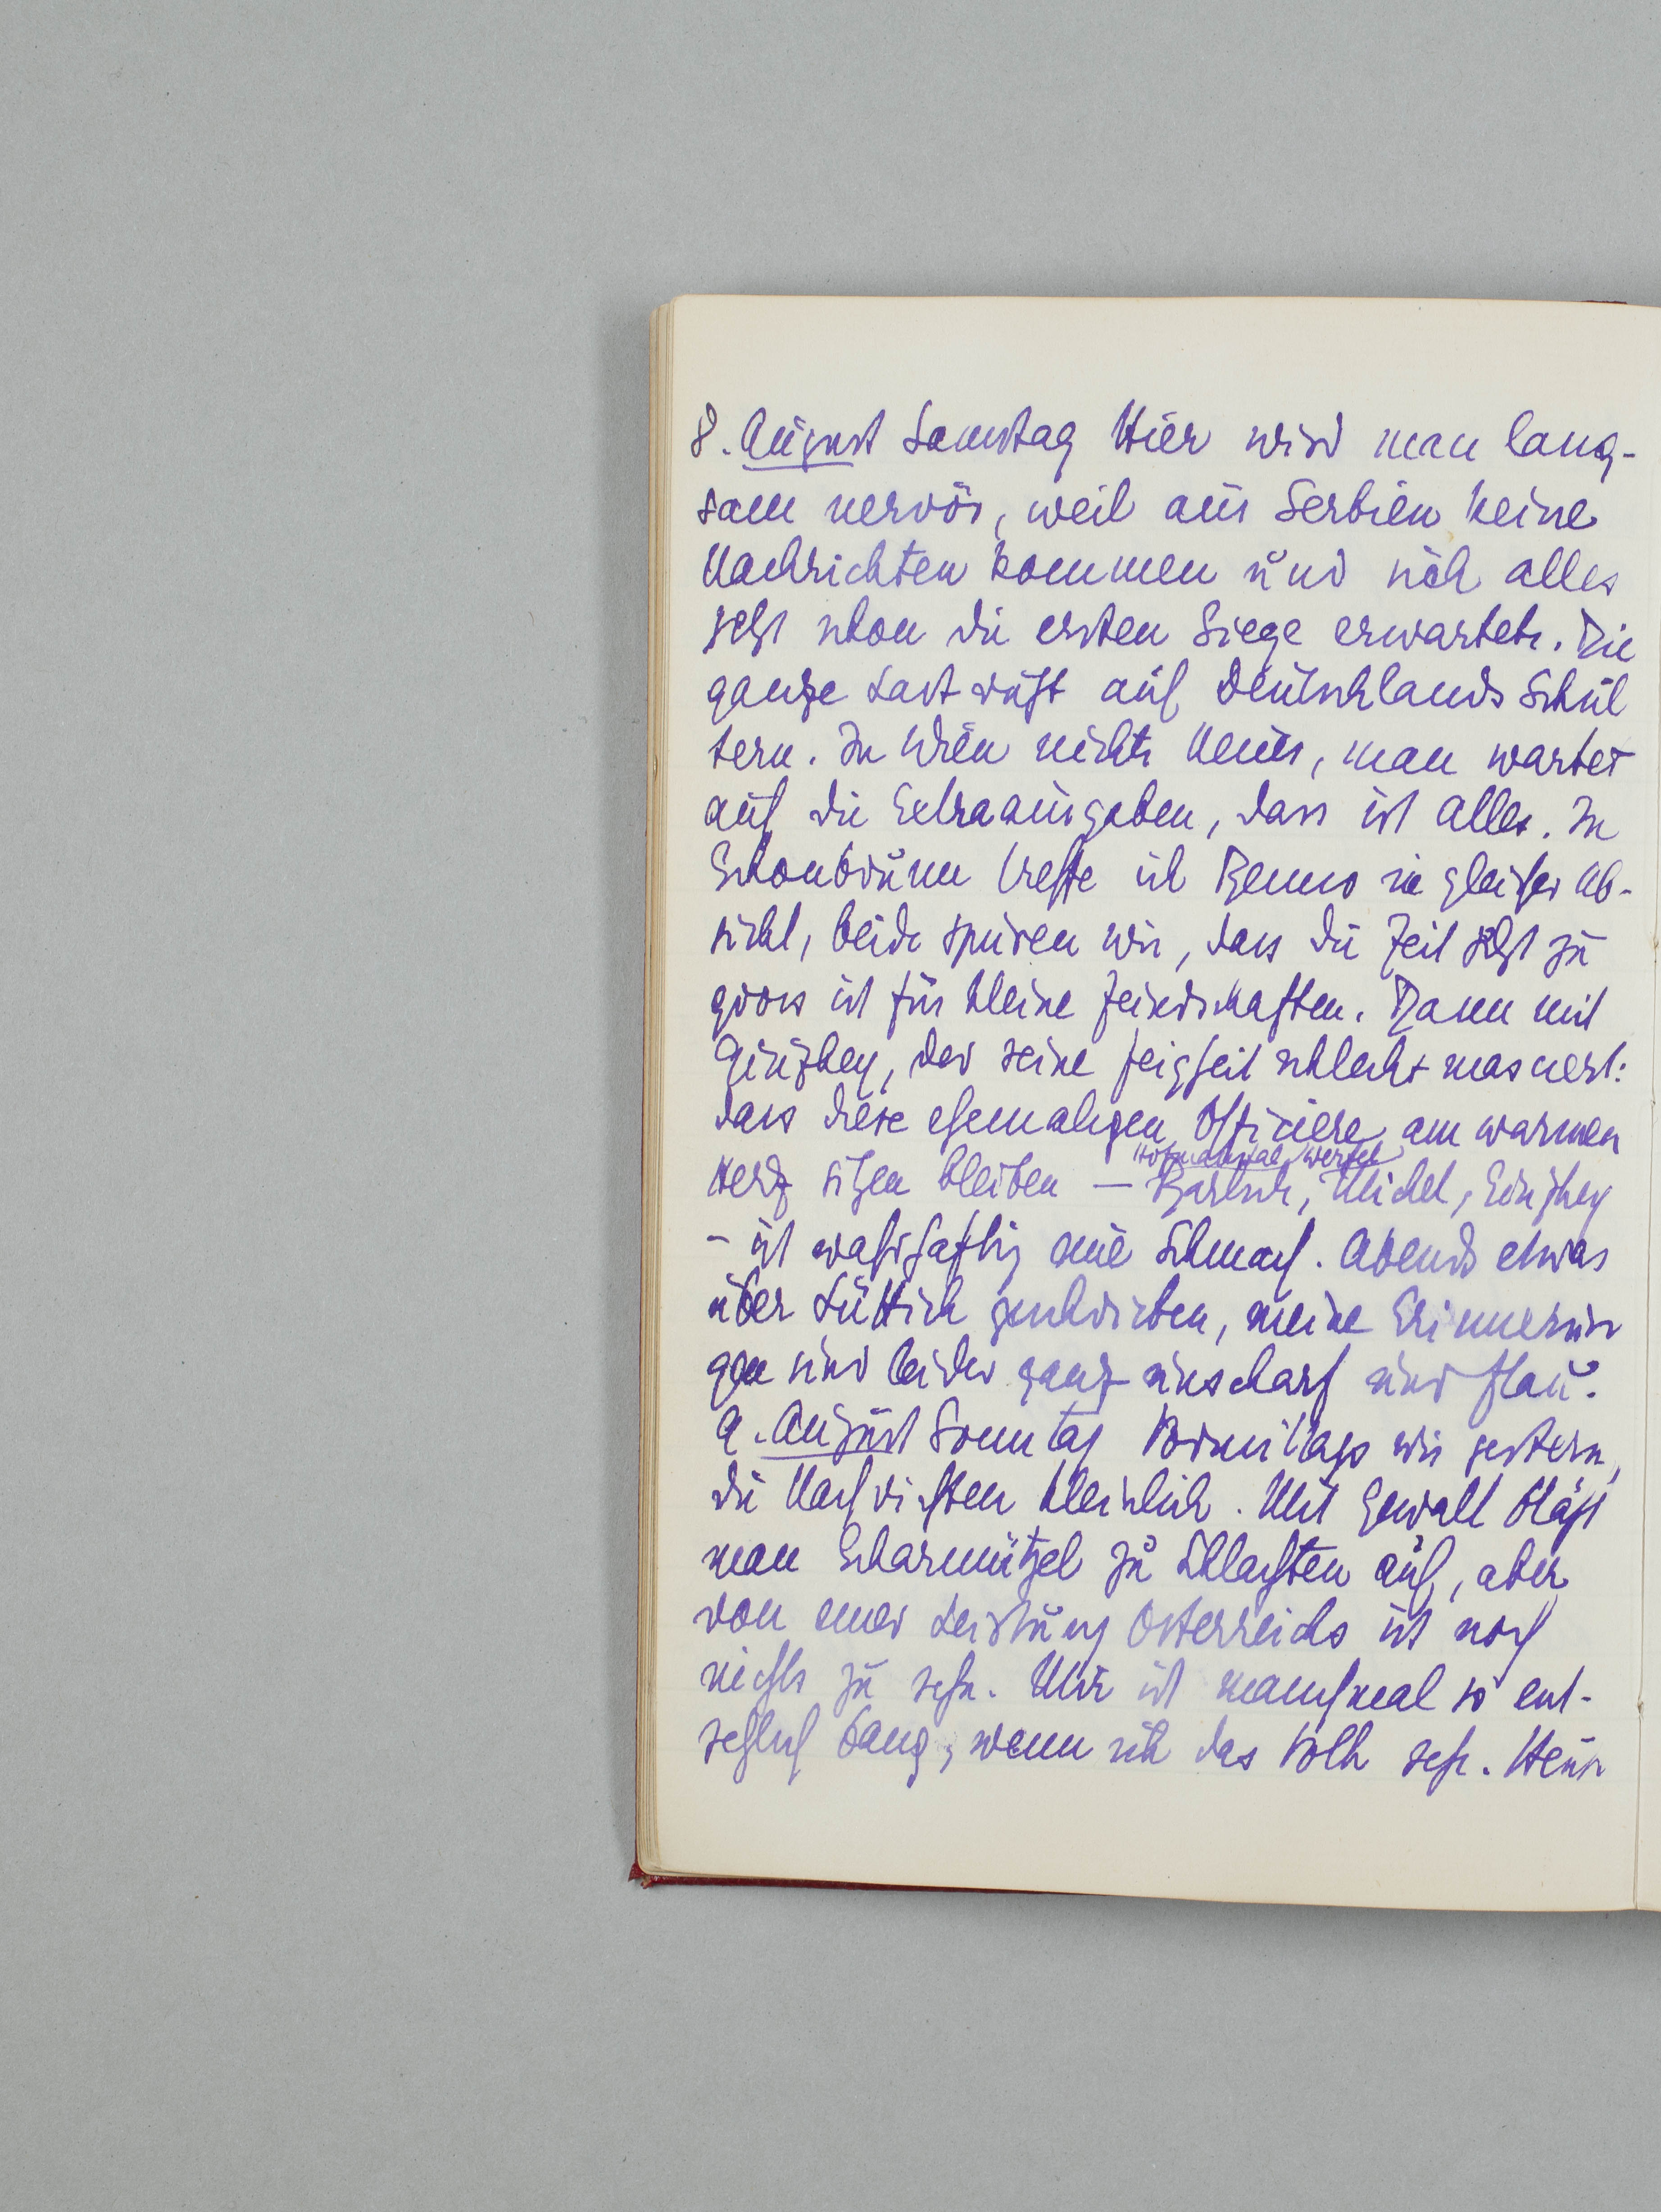 8. August Samstag Hier wird man lang-
sam nervös, weil aus Serbien keine
Nachrichten kommen und sich alles
jetzt schon die ersten Siege erwartete. Die
ganze Last ruht auf Deutschlands Schul
tern. In Wien nichts Neues, man wartet
auf die Extraausgaben, dass ist alles. In
Schönbrunn treffe ich Benno in gleicher Ab-
sicht, beide spüren wir, dass die Zeit jetzt zu
gross ist für kleine Feindschaften. Dann mit
Ginzkey, der seine Feigheit schlecht maskiert:
dass diese ehemaligen Officiere am warmen
Hofmannsthal, Werfel
Herd sitzen bleiben – Bartsch, Michel, Ginzkey
– ist wahrhaftig eine Schmach. Abends etwas
über Lüttich geschrieben, meine Erinnerun
gen sind leider ganz unscharf und flau.
9. August Sonntag Vormittags wie gestern,
die Nachrichten kleinlich. Mit Gewalt bläst
man Scharmützel zu Schlachten auf, aber
von einer Leistung Österreichs ist noch
nichts zu sehn. Mir ist manchmal so ent-
setzlich bang, wenn ich das Volk seh. Heute